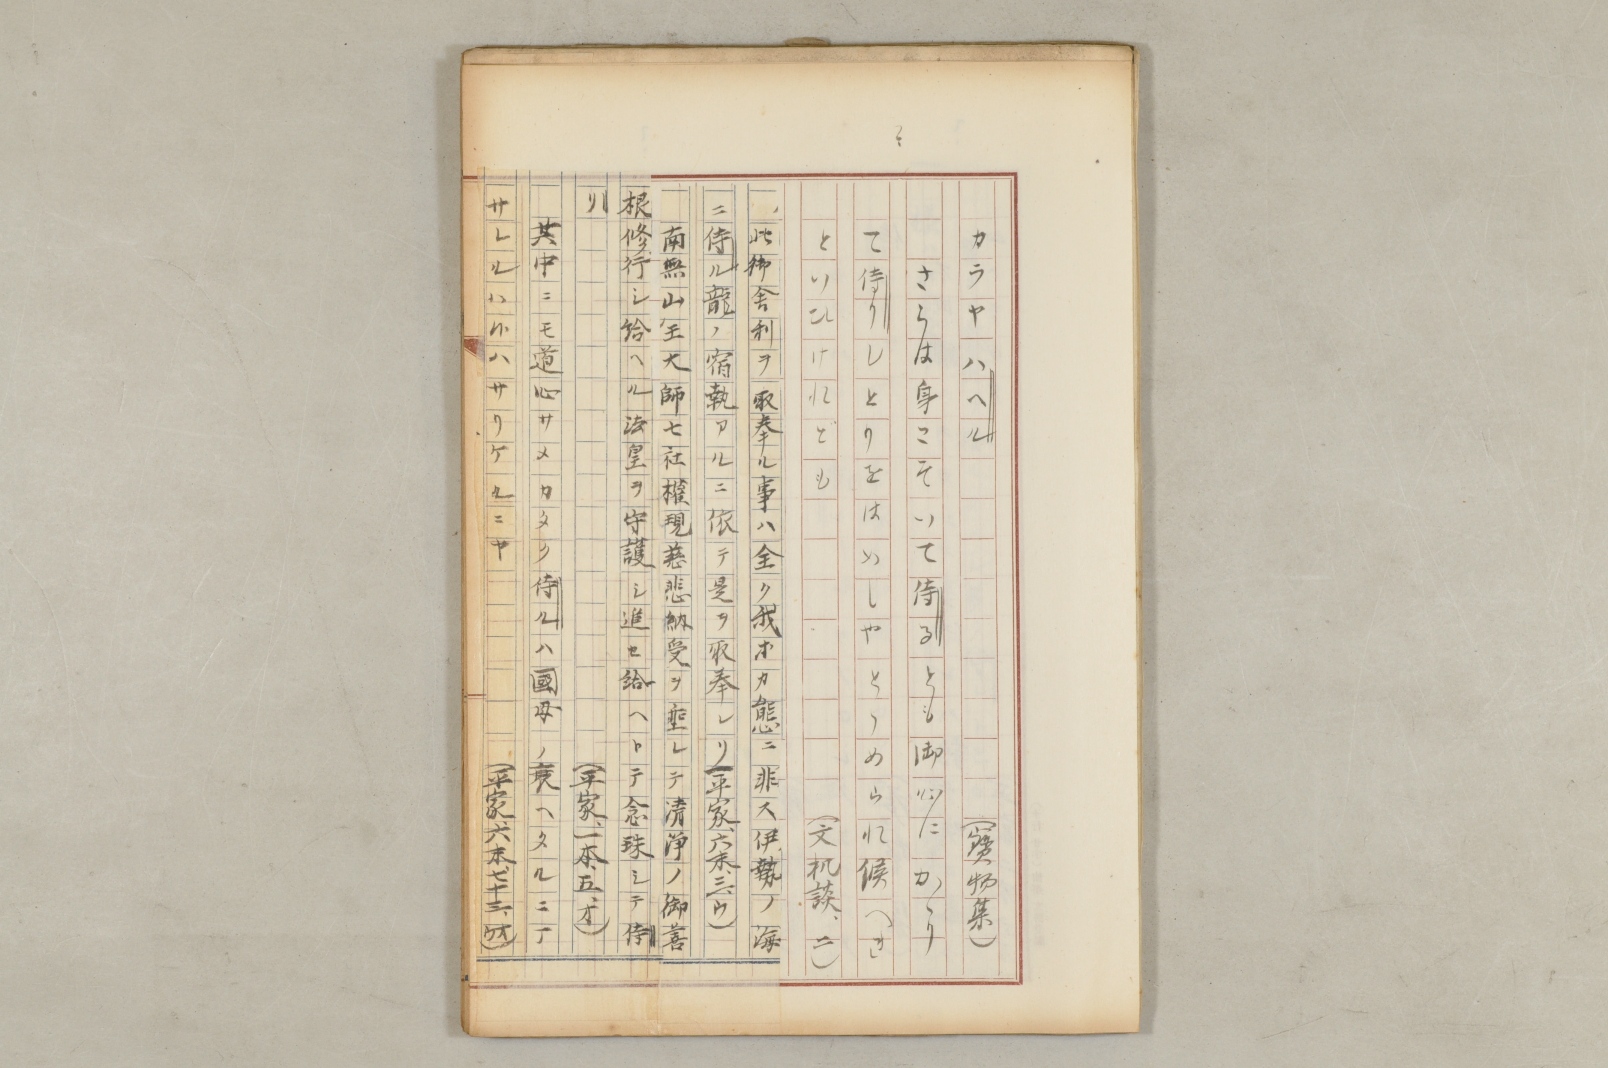 カラヤハヘル（寶物集）
さらは身こそいて侍るとも御心にかゝり
て侍りしとりをはめしやとゝめられ候へき
といひけれども（文机談、二）
此御舎利ヲ取奉ル事ハ全ク我オカ態ニ非ス伊勢ノ海
ニ侍ル龍ノ宿執アルニ依テ是ヲ取奉レリ（平家、六末、三、ウ）
南無山王大師七社権現慈悲納受ヲ垂レテ清浄ノ御善
根修行シ給ヘル法皇ヲ守護シ進セ給ヘトテ念珠シテ侍
リ（平家、一本、五、オ）
其中ニモ道心サメカタク侍ルハ國母ノ衰ヘタルニテ
サレルハハサリケルニヤ（平家、六末、七十三、ウオ）